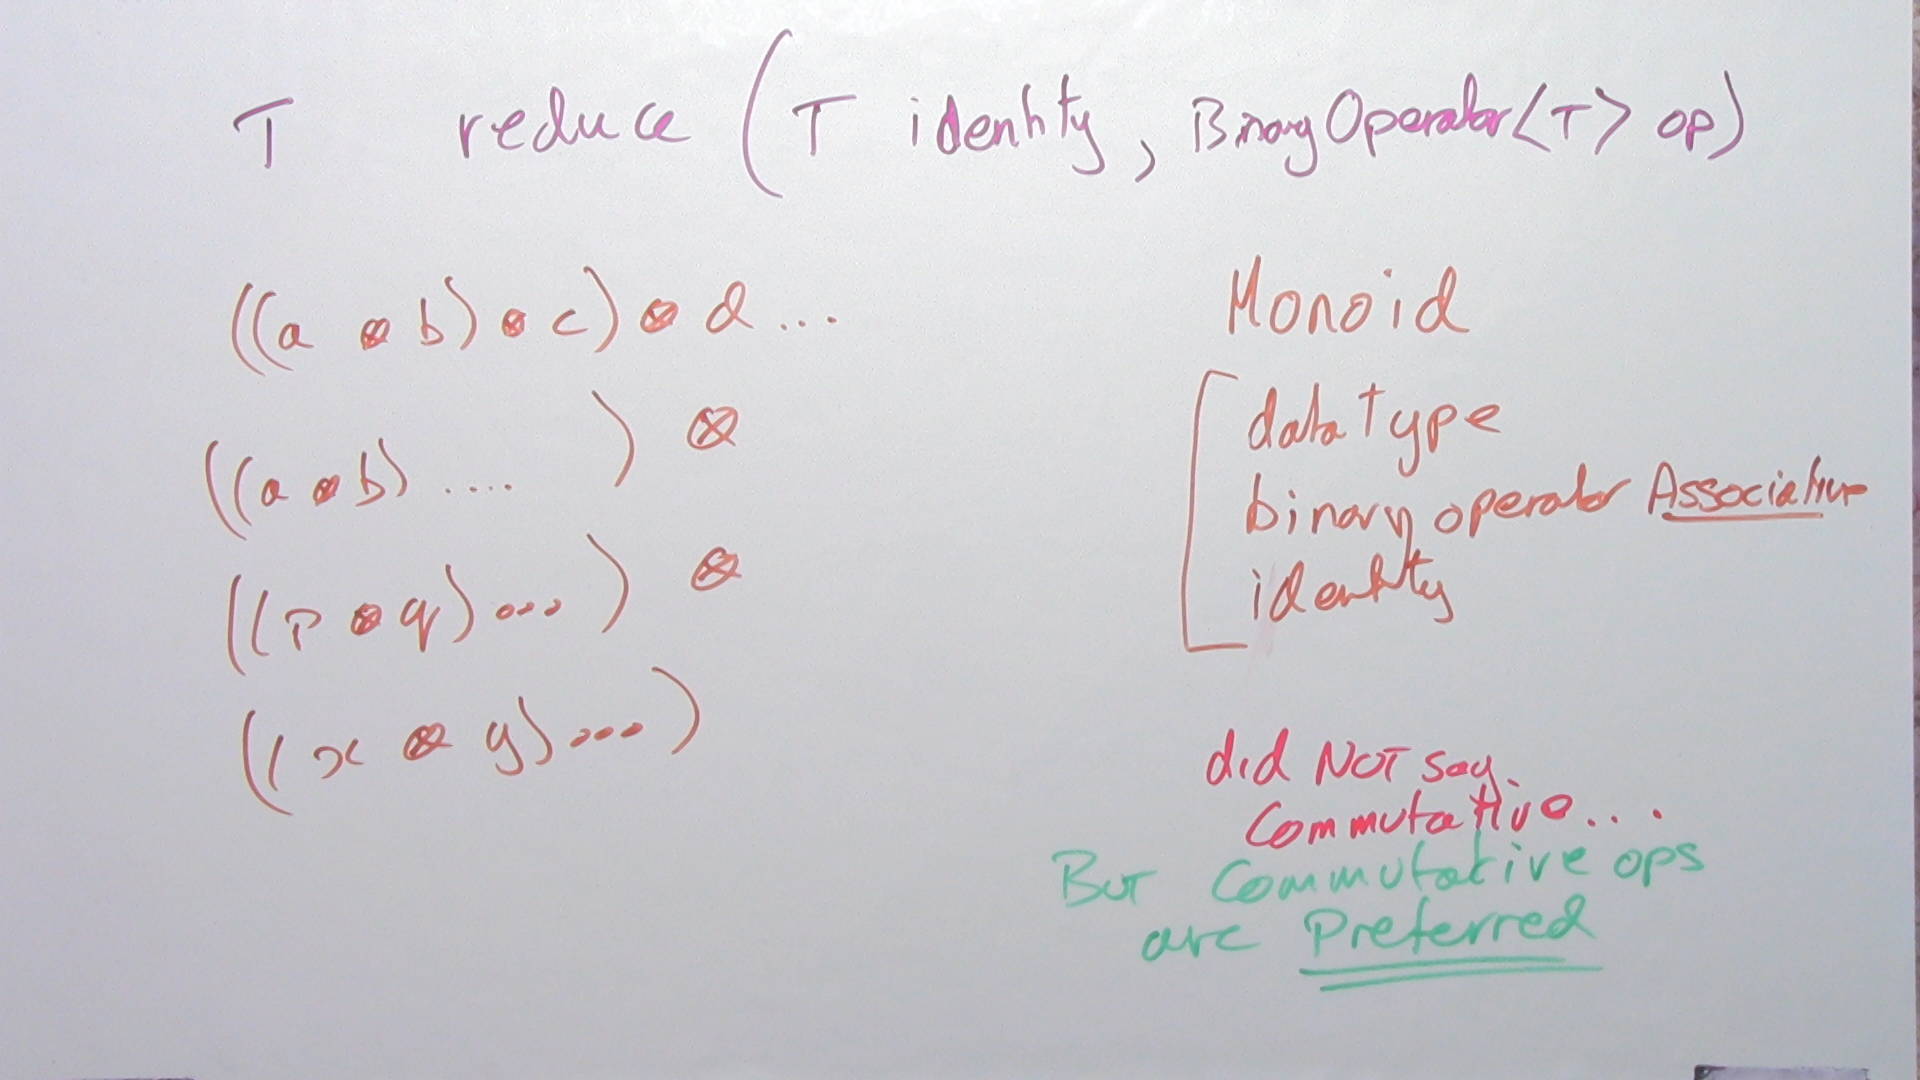 T reduce (T identity, BinaryOperator<T> op)
((a ⊗ b) ⊗ c) ⊗ d ...
((a ⊗ b) .... ) ⊗
((p ⊗ q) ... ) ⊗
((x ⊗ y) .... )
Monoid
data type
binary operator Associative
identity
did NOT say
Commutative ...
But Commutative ops
are Preferred